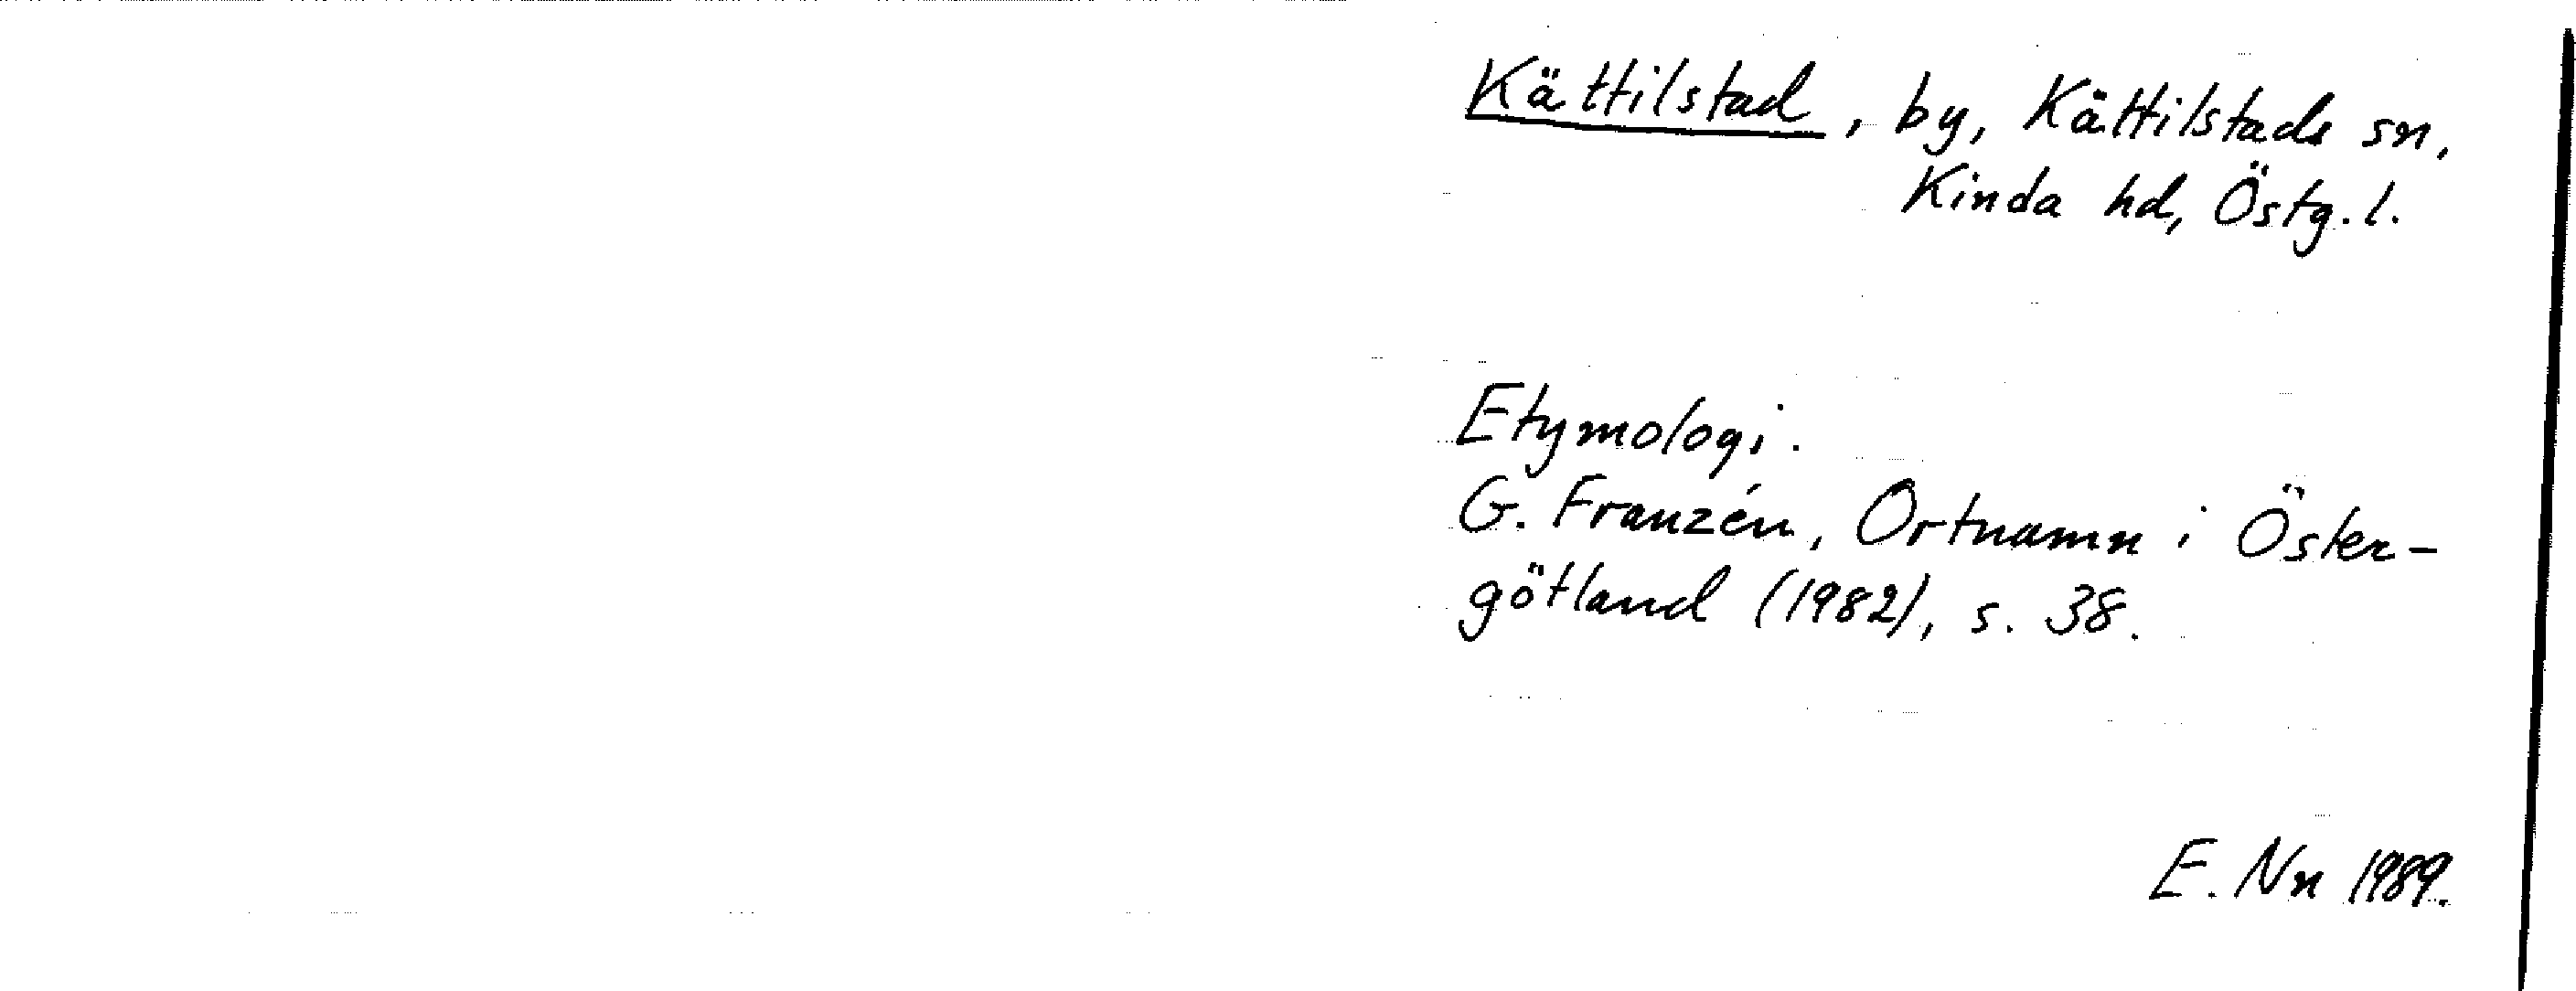 Kättilstad, by, Kättilstads sn,
Kinda hd, Östg. l.
Etymologi.
G. Franzén, Ortnamn i Öster-
götland (1982), s. 38.
E. Nn 1989.